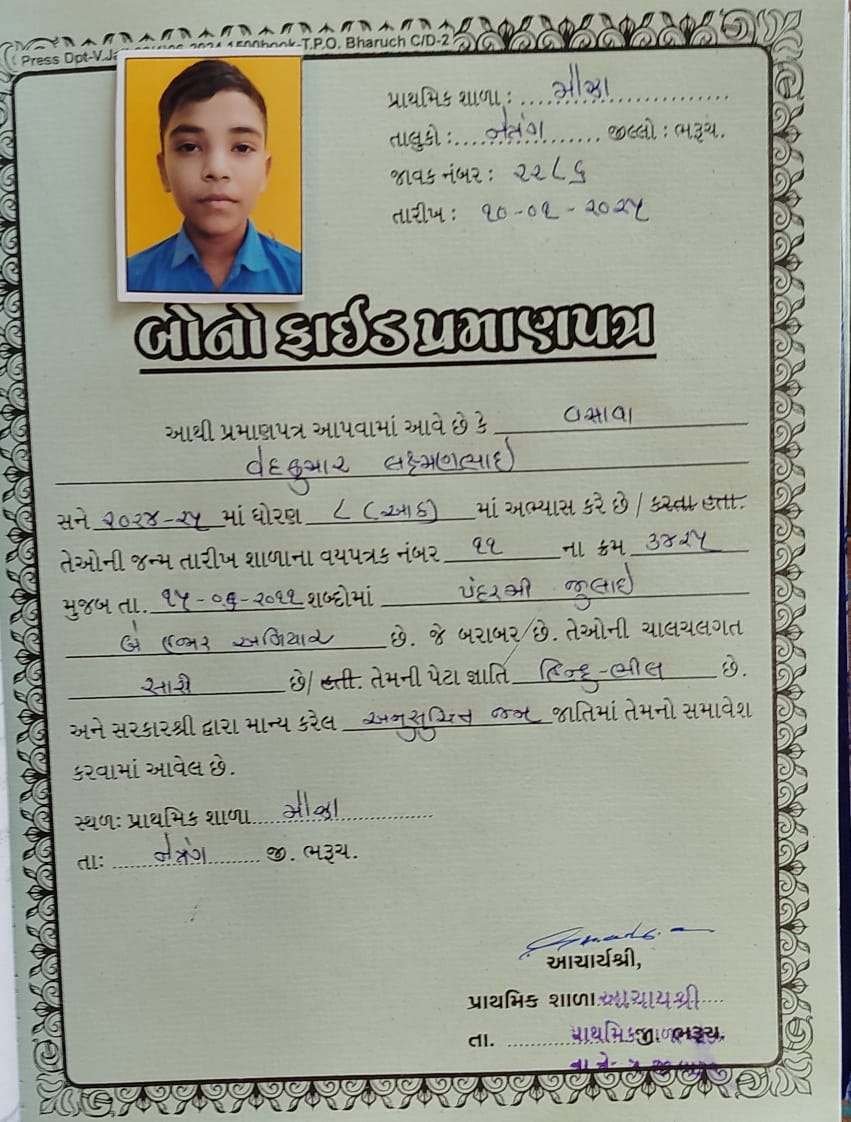 Press Dpt-V.Ja 2024 1500book-T.P.O. Bharuch C/D-2
પ્રાથમિક શાળા : મૌઝા
તાલુકો : નેત્રંગ જીલ્લો : ભરૂચ.
જાવક નંબર : ૨૨૮૬
તારીખ : ૧૦-૦૧-૨૦૨૫
બોનોફાઈડ પ્રમાણપત્ર
આથી પ્રમાણપત્ર આપવામાં આવે છે કે વસાવા
વેદકુમાર લક્ષ્મણભાઈ
સને ૨૦૨૪-૨૫ માં ધોરણ ૮ (આઠ) માં અભ્યાસ કરે છે / કરતા હતા.
તેઓની જન્મ તારીખ શાળાના વયપત્રક નંબર ૧૧ ના ક્રમ ૩૪૨૫
મુજબ તા. ૧૫-૦૬-૨૦૧૧ શબ્દોમાં પંદરમી જુલાઈ
બે હજાર અગિયાર છે. જે બરાબર છે. તેઓની ચાલચલગત
સારી છે/ હતી. તેમની પેટા જ્ઞાતિ હિન્દુ-ભીલ છે.
અને સરકારશ્રી દ્વારા માન્ય કરેલ અનુસુચિત જન જાતિમાં તેમનો સમાવેશ
કરવામાં આવેલ છે.
સ્થળઃ પ્રાથમિક શાળા મૌઝા
તાઃ નેત્રંગ જી. ભરૂચ.
આચાર્યશ્રી,
પ્રાથમિક શાળા આચાર્યશ્રી
તા. પ્રાથમિક જી. ભરૂચ.